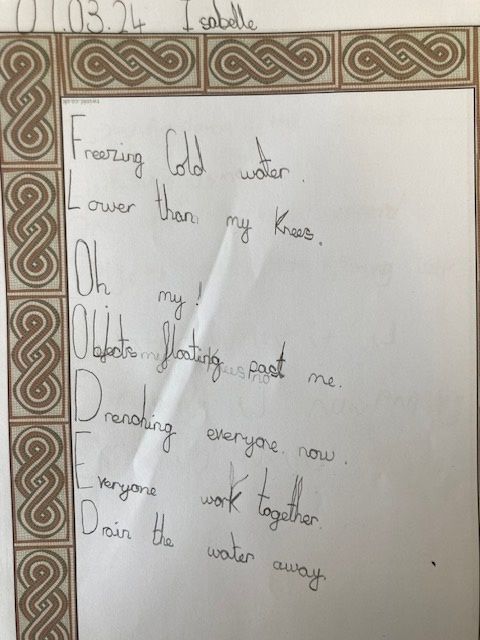 01.03.24 Isabelle
twinkl.co.uk
Freezing Cold water.
Lower than my Knees.
Oh my!
Objects floating past me.
Drenching everyone now.
Everyone work together.
Drain the water away.